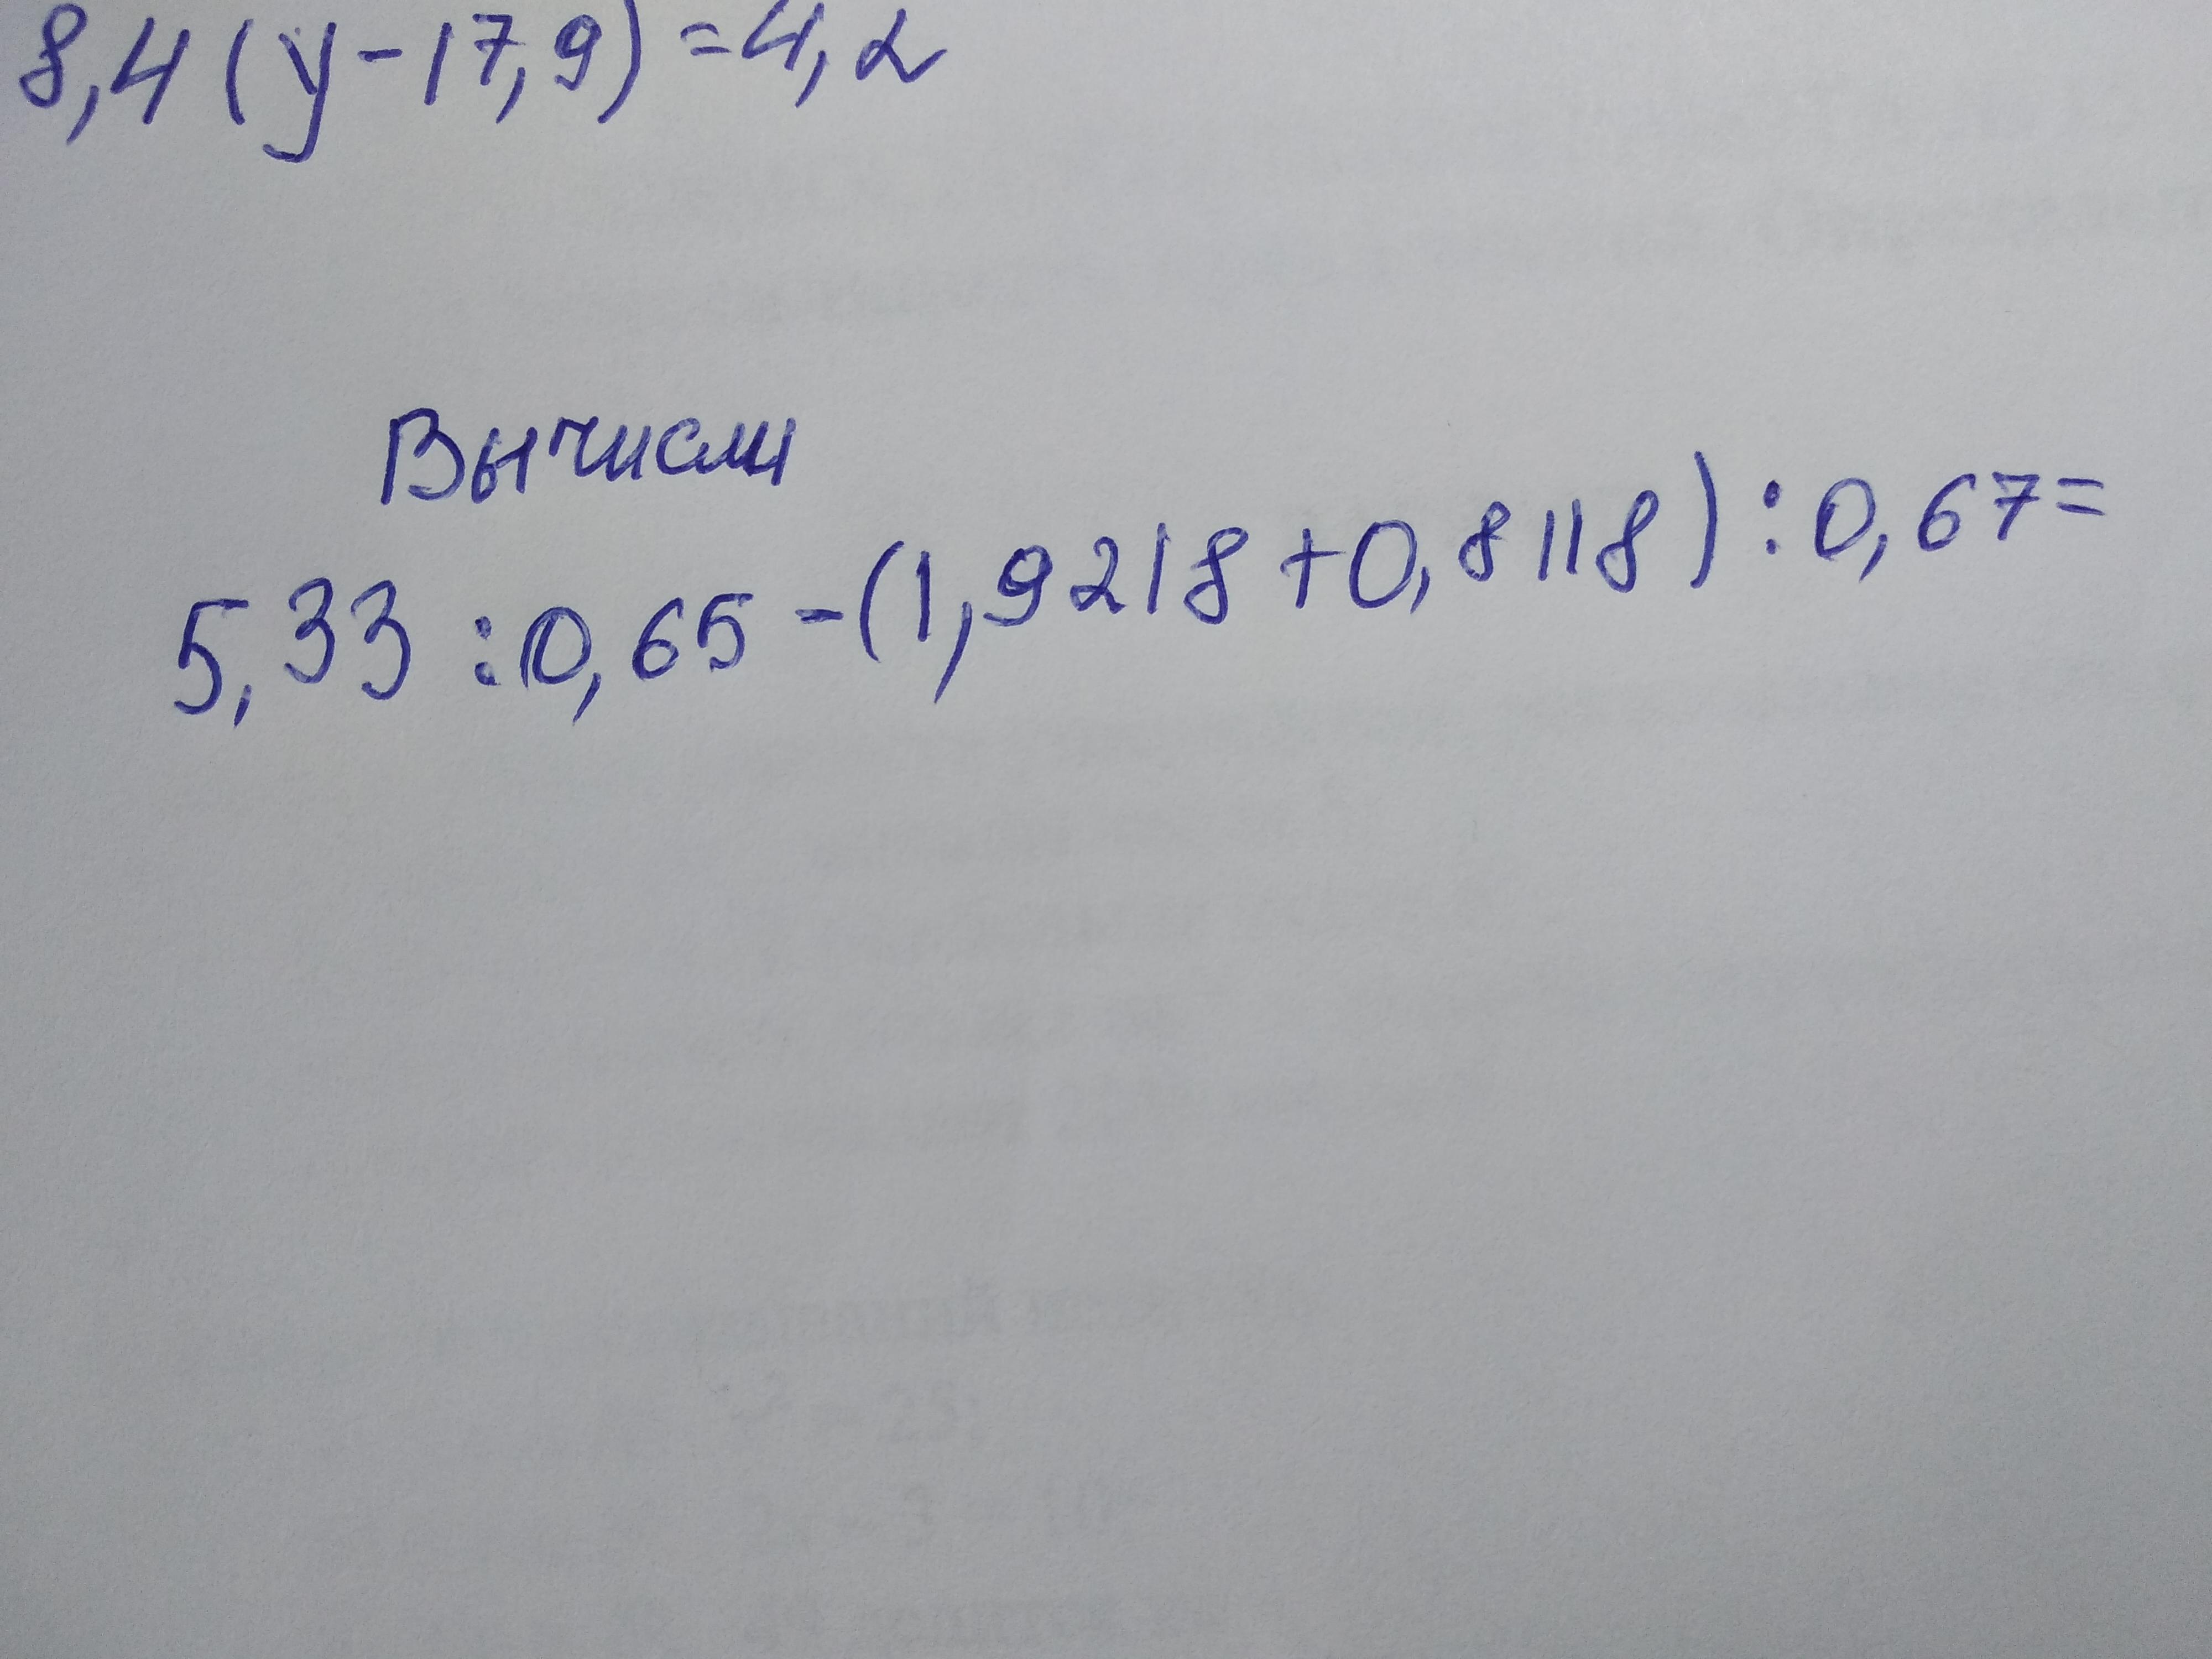 8,4(y-17,9)=4,2
Вычисли
5,33:0,65-(1,9218+0,8118):0,67=